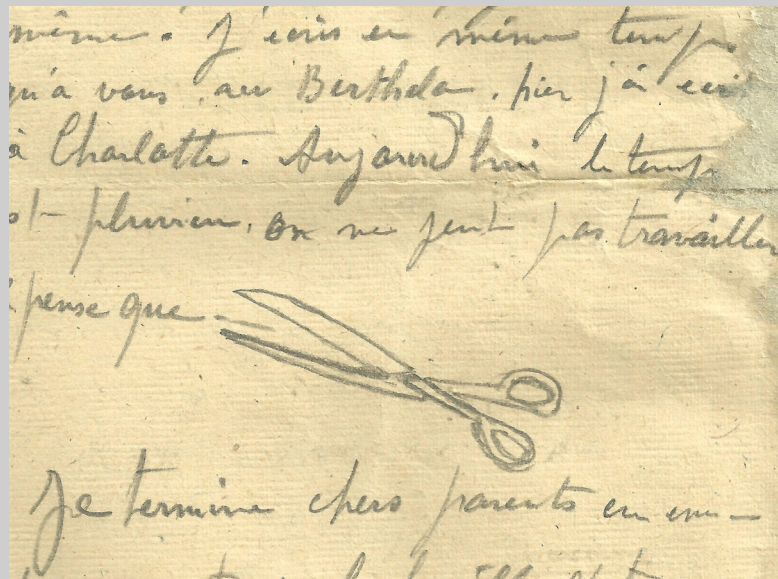 même. J'écris en même temps
qu'à vous, au Berthela. hier j'ai écrit
à Charlotte. Aujourd'hui le temps
est pluvieu, on ne peut pas travailler
pense que
Je termine chers parents en